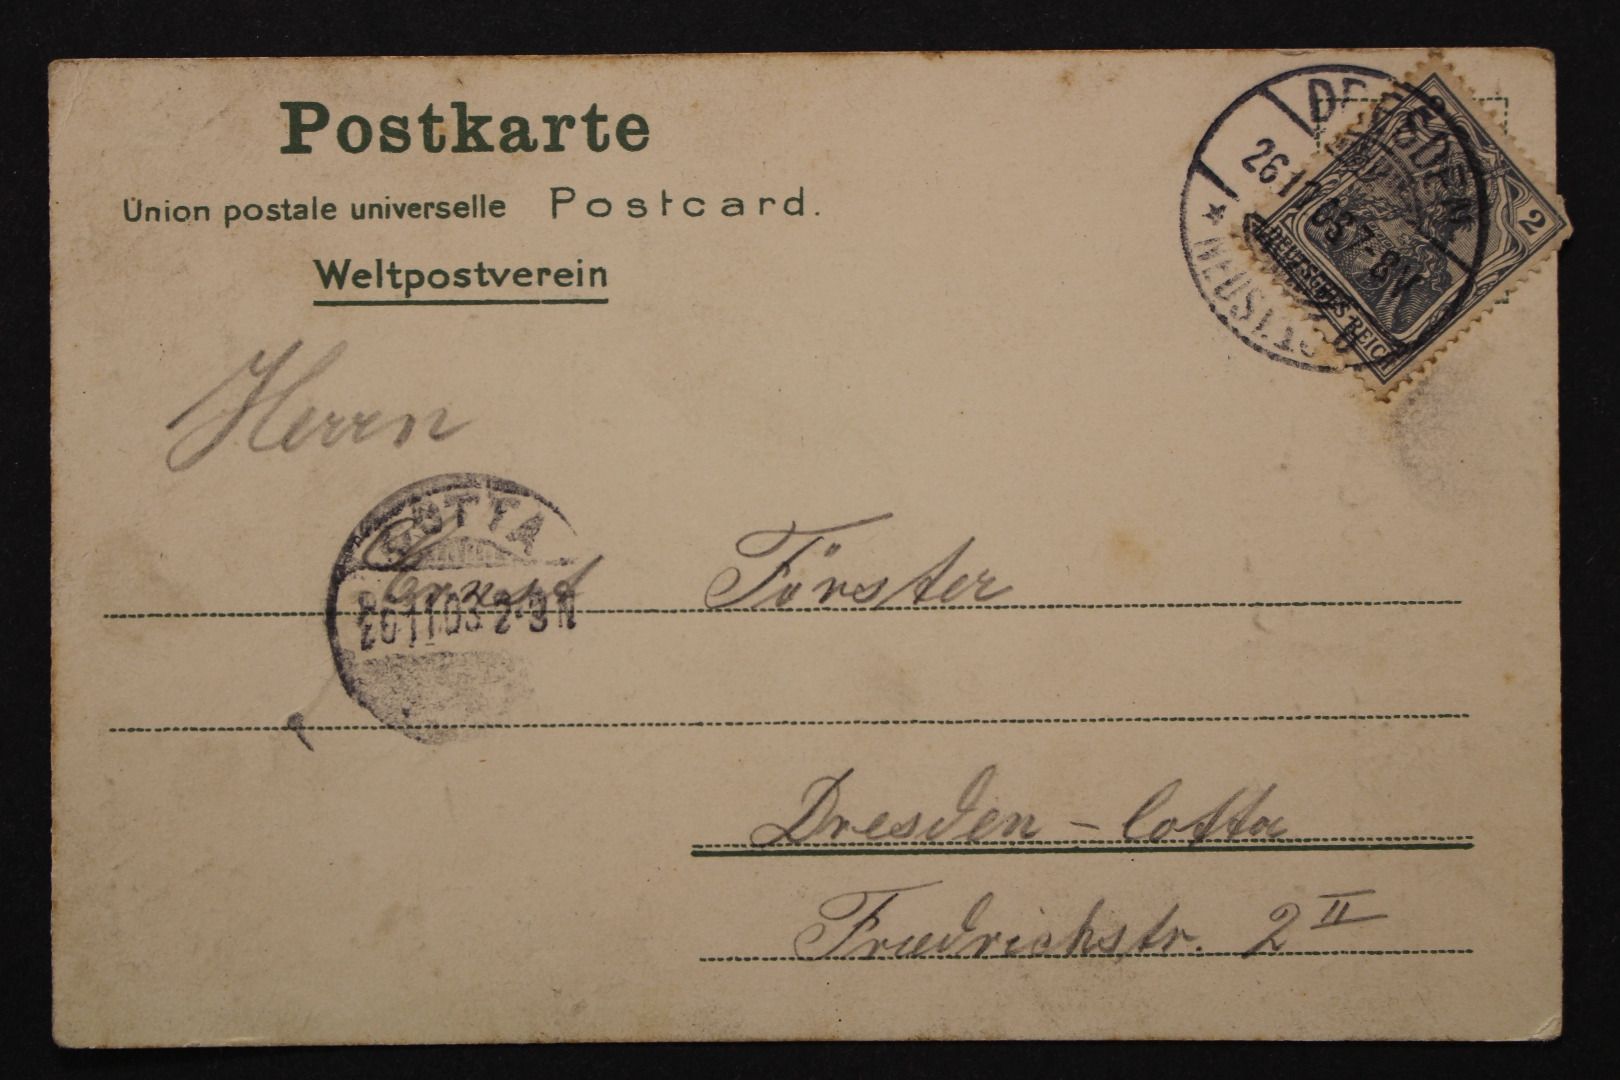 Postkarte
Union postale universelle Postcard.
Weltpostverein
DRESDEN
26.11.03. 7-8 N
* NEUST.
2
DEUTSCHES REICH
Herrn
COTTA
26.11.03 2-3 N
Ernst Förster
Dresden - Cotta
Friedrichstr. 2 II